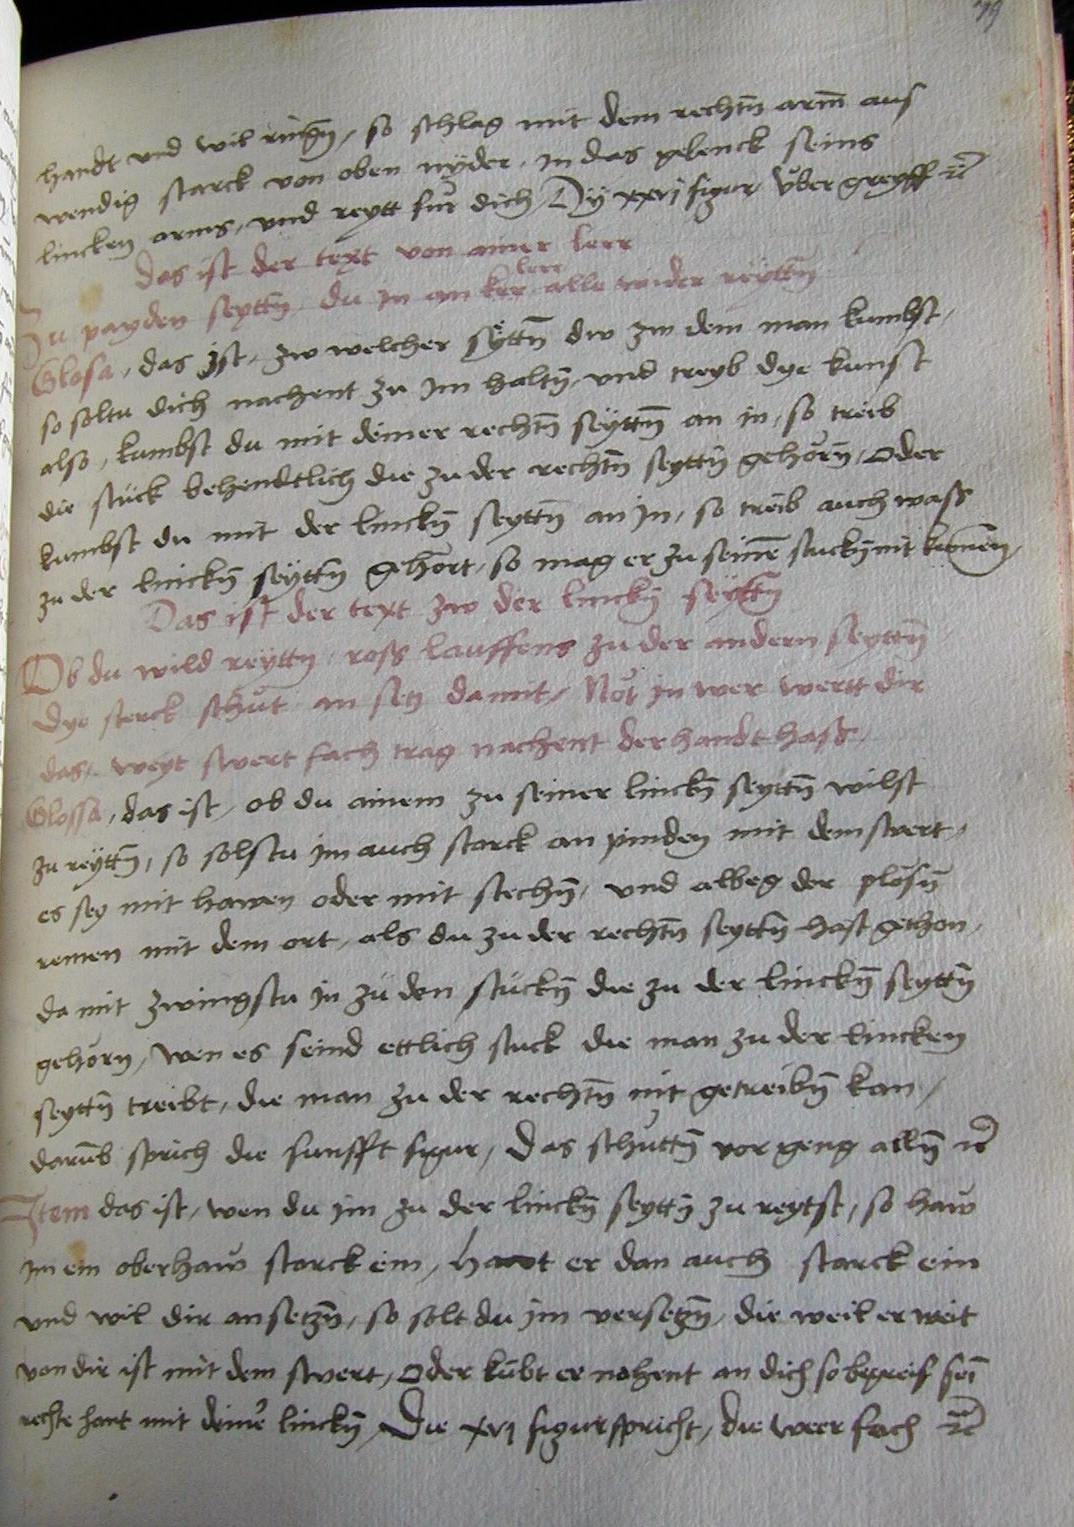 79
handt vnd wil ringñ, so schlag mit dem rechtñ arm̄ aus
wendig starck von oben nÿder, in das gelenck seins
lincken arms, vnd reytt für dich, Dÿ xxvj figur, Vber greÿff ⁊c̄
Das ist der text von ainer lerr
Zu payden seyttñ, du In an ker lere alle wider reÿttñ
Glosa, das jst, zw welcher sÿttñ dw zw dem man kumbst,
so soltu dich nachent zu Im haltñ, vnd treyb dye kunst
also, kumbst du mit deiner rechtñ seÿttñ an in, so treib
die stück behendtlich die zu der rechtñ seÿttñ gehörñ, Oder
kumbst du mit der linckñ seÿttñ an In, so treib auch wass
zu der linckñ seÿttñ gehört, so mag er zu seinē stuckñ nit kumēn,
Das ist der text zw der linckñ seÿttñ
Ob du wild reÿttñ, ross lauffens zu der andern seyttñ
Dye sterck schüt an setz damit, Nöt In wer wertt dir
das, weyt swert fach trag nachent der handt hass,
Glossa, das ist, ob du ainem zu seiner linckñ seyttñ wilst
zu reÿttñ, so solstu Im auch starck an pinden mit dem swert,
es sey mit hawen oder mit stechñ, vnd albeg der plösñ
remen mit dem ort, als du zu der rechtñ seyttñ hast gethon,
da mit zwingstu In zu den stückñ die zu der linckñ seyttñ
gehörn, Wen es seind ettlich stuck die man zu der lincken
seyttñ treibt, die man zu der rechtñ nit getreibñ kan,
darūb sprich die funfft figur, Das schüttñ vor geng allñ ⁊c̄
Item das ist, wen du Im zu der linckñ seyttñ zu reytst, so haw
Im ein oberhaw starck ein, hawt er dan auch starck ein
vnd wil dir an setzñ, so solt du Im versetzñ, die weil er weit
von dir ist mit dem swert, Oder kūbt er nahent an dich so begreif sei
rechte hant mit deinē linckñ, Die xvj figur spricht, die weer fach ⁊c̄